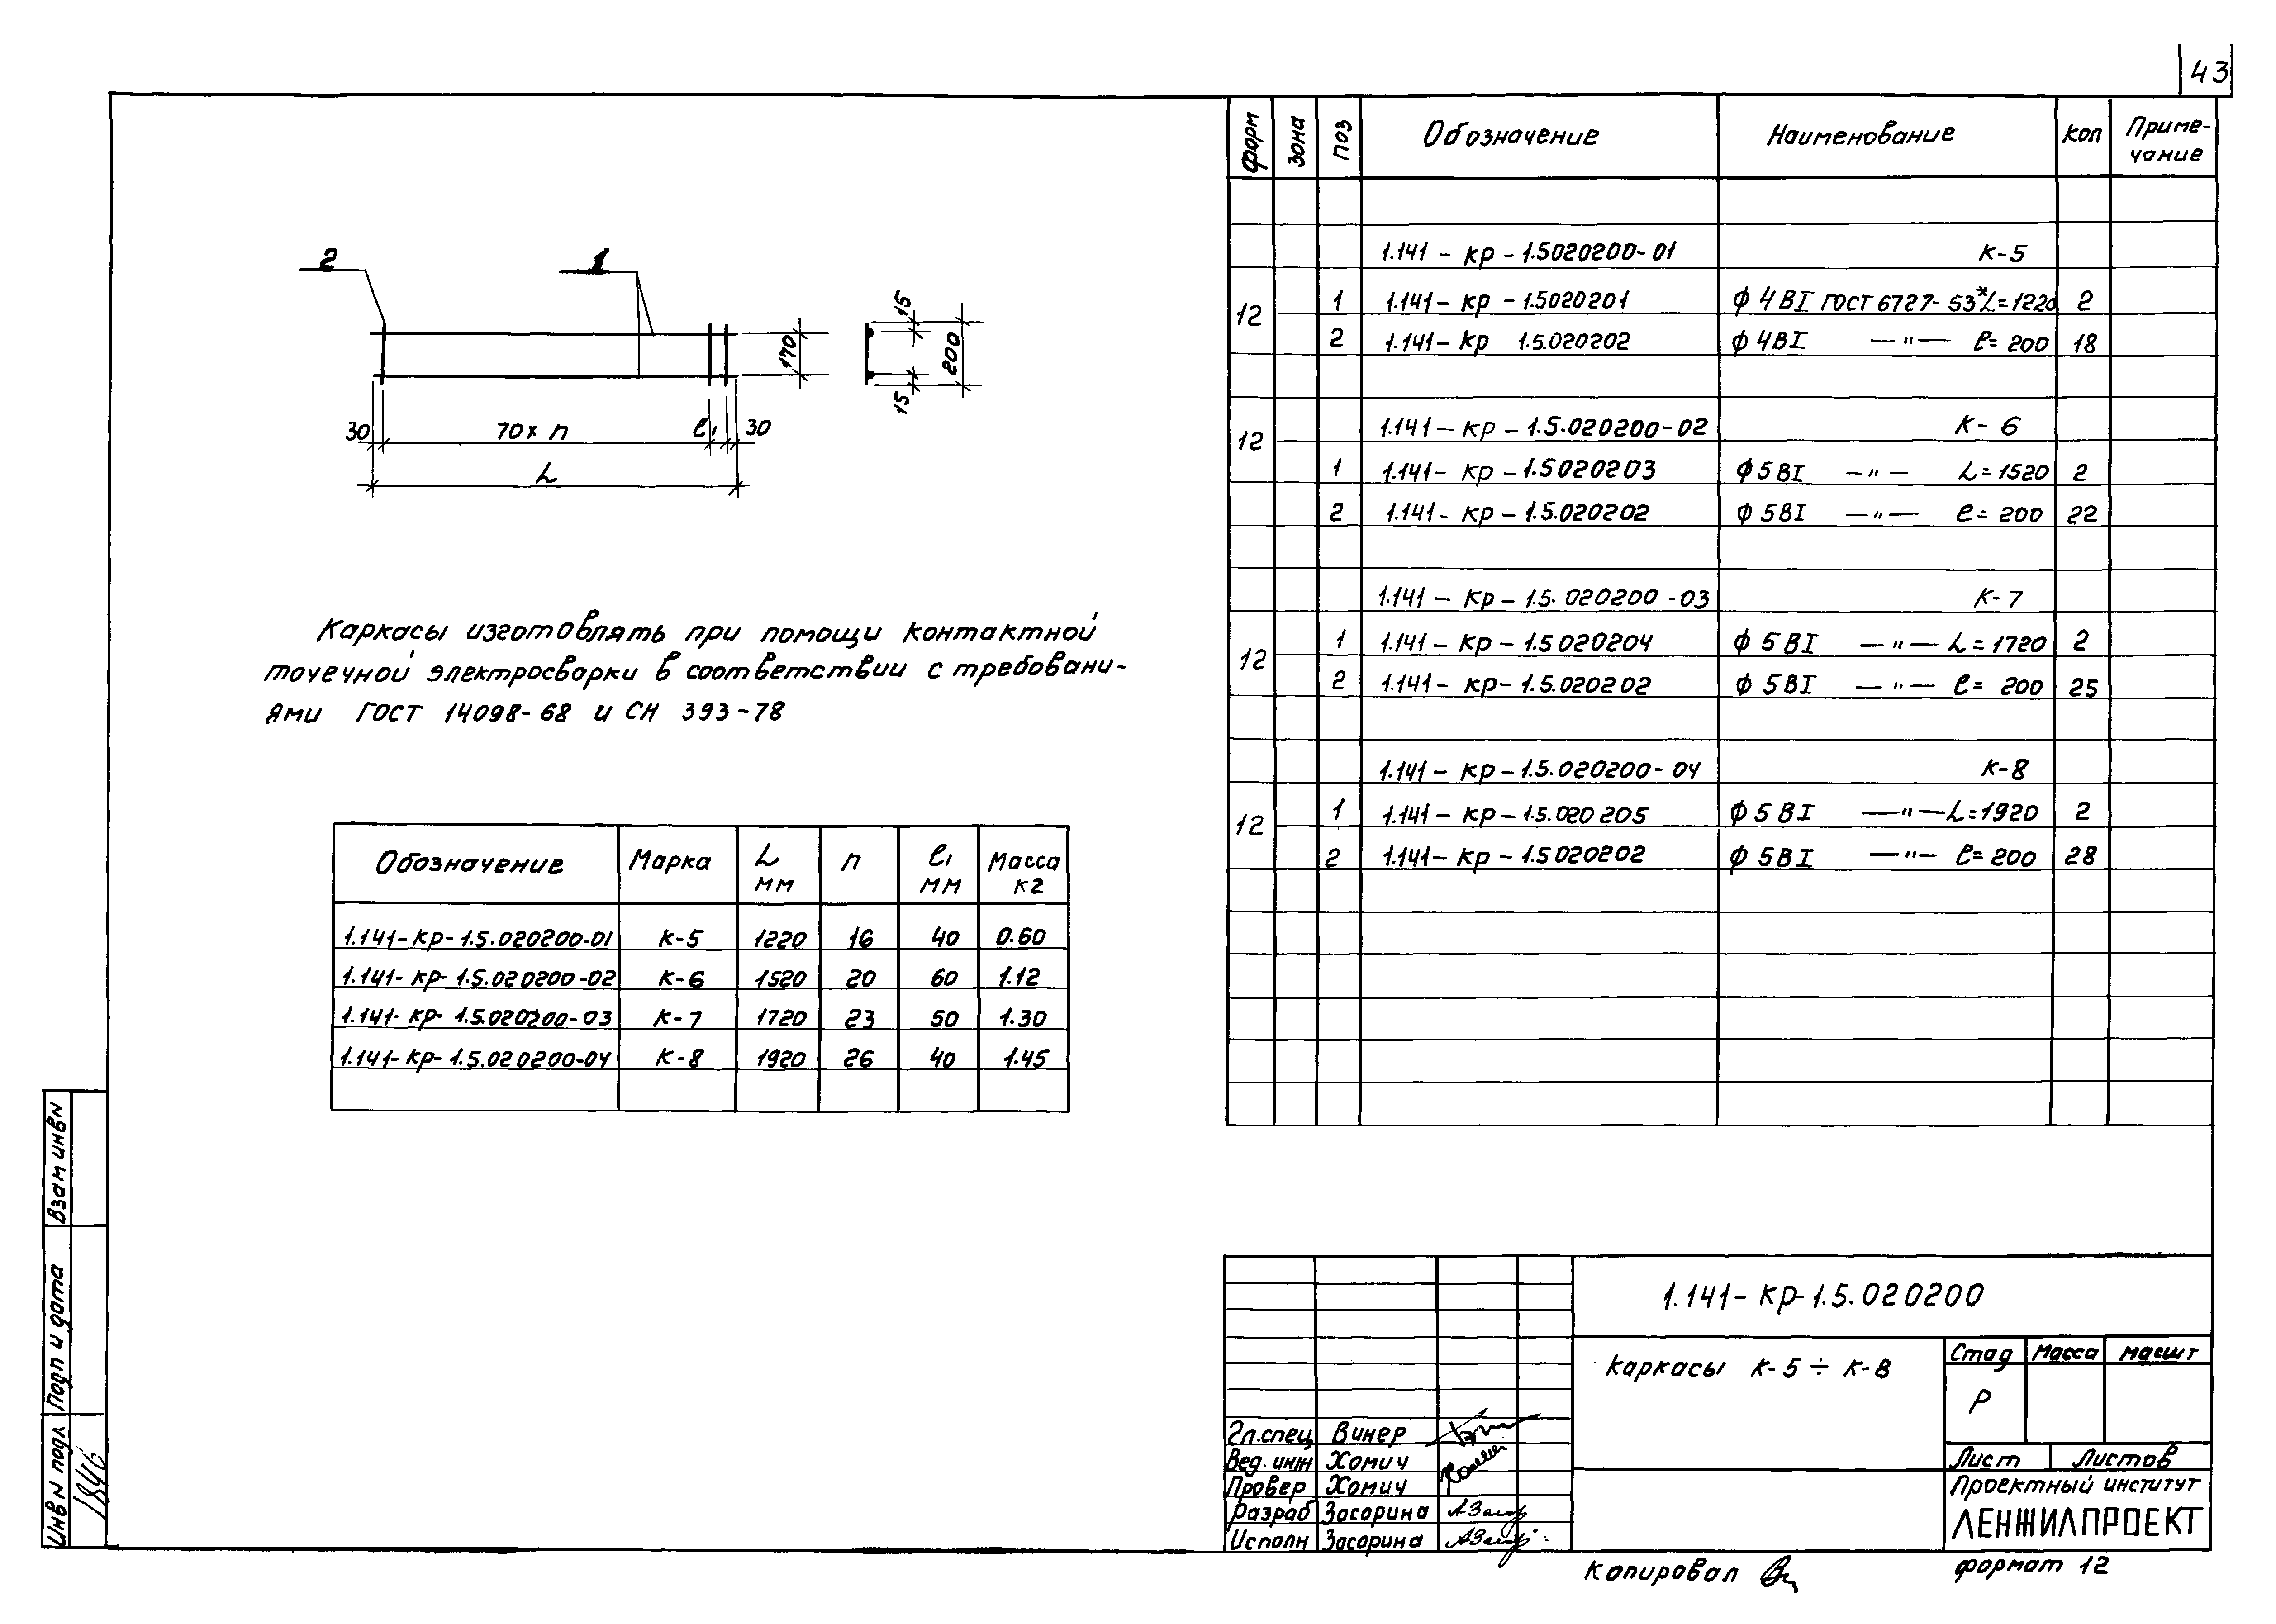 43
2
1
15
170
200
15
30
70х n
ℓ₁
30
L
Каркасы изготовлять при помощи контактной
точечной электросварки в соответствии с требовани-
ями ГОСТ 14098-68 и СН 393-78
Обозначение Марка L мм n ℓ₁ мм Масса кг
1.141-КР-1.5.020200-01 К-5 1220 16 40 0.60
1.141-КР-1.5.020200-02 К-6 1520 20 60 1.12
1.141-КР-1.5.020200-03 К-7 1720 23 50 1.30
1.141-КР-1.5.020200-04 К-8 1920 26 40 1.45
форм зона поз Обозначение Наименование Кол Приме-
чание
1.141-КР-1.5020200-01 К-5
12 1 1.141-КР-1.5020201 ф 4ВI ГОСТ 6727-53* L=1220 2
2 1.141-КР 1.5.020202 ф 4ВI —"— ℓ=200 18
12 1.141-КР-1.5.020200-02 К-6
1 1.141-КР-1.5020203 ф 5ВI —"— L=1520 2
2 1.141-КР-1.5.020202 ф 5ВI —"— ℓ=200 22
1.141-КР-1.5.020200-03 К-7
12 1 1.141-КР-1.5020204 ф 5ВI —"— L=1720 2
2 1.141-КР-1.5.020202 ф 5ВI —"— ℓ=200 25
1.141-КР-1.5.020200-04 К-8
12 1 1.141-КР-1.5.020205 ф 5ВI —"— L=1920 2
2 1.141-КР-1.5020202 ф 5ВI —"— ℓ=200 28
1.141-КР-1.5.020200
Каркасы К-5÷К-8
Стад Масса Масшт
Р
Лист Листов
Проектный институт
ЛЕНЖИЛПРОЕКТ
Гл.спец Винер
Вед.инж Хомич
Провер Хомич
Разраб Засорина
Исполн Засорина
Копировал
формат 12
Взам инв N
Подп и дата
Инв N подл
1846